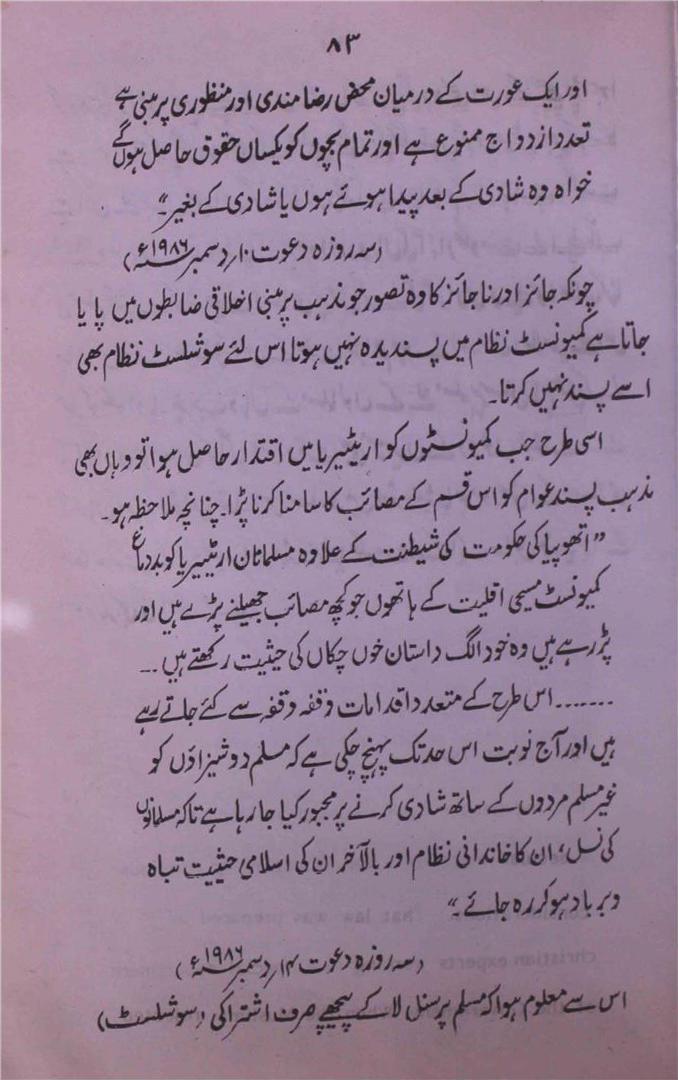 ۸۳
اور ایک عورت کے درمیان محض رضا مندی اور منظوری پر مبنی ہے
تعدد ازدواج ممنوع ہے اور تمام بچوں کو یکساں حقوق حاصل ہوں گے
خواہ وہ شادی کے بعد پیدا ہوئے ہوں یا شادی کے بغیر"
(سہ روزہ دعوت ۱۰؍دسمبر ۱۹۸۶ء)
چونکہ جائز اور ناجائز کا وہ تصور جو مذہب پر مبنی اخلاقی ضابطوں میں پایا
جاتا ہے کمیونسٹ نظام میں پسندیدہ نہیں ہوتا اس لئے سوشلسٹ نظام بھی
اسے پسند نہیں کرتا۔
اسی طرح جب کمیونسٹوں کو اریٹیریا میں اقتدار حاصل ہوا تو وہاں بھی
مذہب پسند عوام کو اس قسم کے مصائب کا سامنا کرنا پڑا۔ چنانچہ ملاحظہ ہو۔
"اتھوپیا کی حکومت کی شیطنت کے علاوہ مسلمانان اریٹیریا کو بددماغ
کمیونسٹ مسیحی اقلیت کے ہاتھوں جو کچھ مصائب جھیلنے پڑے ہیں اور
پڑ رہے ہیں وہ خود الگ داستان خوں چکاں کی حیثیت رکھتے ہیں ...
....... اس طرح کے متعدد اقدامات وقفہ وقفہ سے کئے جاتے رہے
ہیں اور آج نوبت اس حد تک پہنچ چکی ہے کہ مسلم دوشیزاؤں کو
غیر مسلم مردوں کے ساتھ شادی کرنے پر مجبور کیا جا رہا ہے تاکہ مسلمانوں
کی نسل، ان کا خاندانی نظام اور بالآخر ان کی اسلامی حیثیت تباہ
و برباد ہو کر رہ جائے۔"
(سہ روزہ دعوت ۱۴؍دسمبر ۱۹۸۶ء)
اس سے معلوم ہوا کہ مسلم پرسنل لا کے پیچھے صرف اشتراکی (سوشلسٹ)